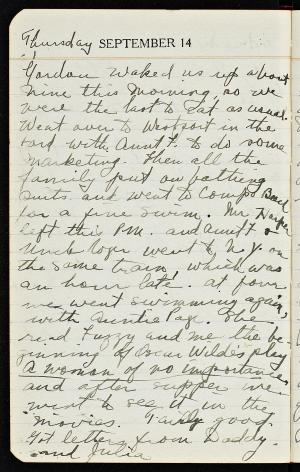 Thursday SEPTEMBER 14
Gordon waked us up about
nine this morning, so we
were the last to eat as usual.
Went over to Westport in the
Ford with Aunt F. to do some
marketing. Then all the
family put on bathing
suits and went to Compo Beach
for a fine swim. Mr Harper
left this P.M. and Aunt F. &
Uncle Roger went to N.Y. on
the same train, which was
an hour late. at four
we went swimming again,
with Auntie Page. She
read Fuzzy and me the be-
ginning of Oscar Wilde's play
A woman of no importance
and after supper we
went to see it in the
movies. Fairly good.
Got letters from Daddy.
and Julia